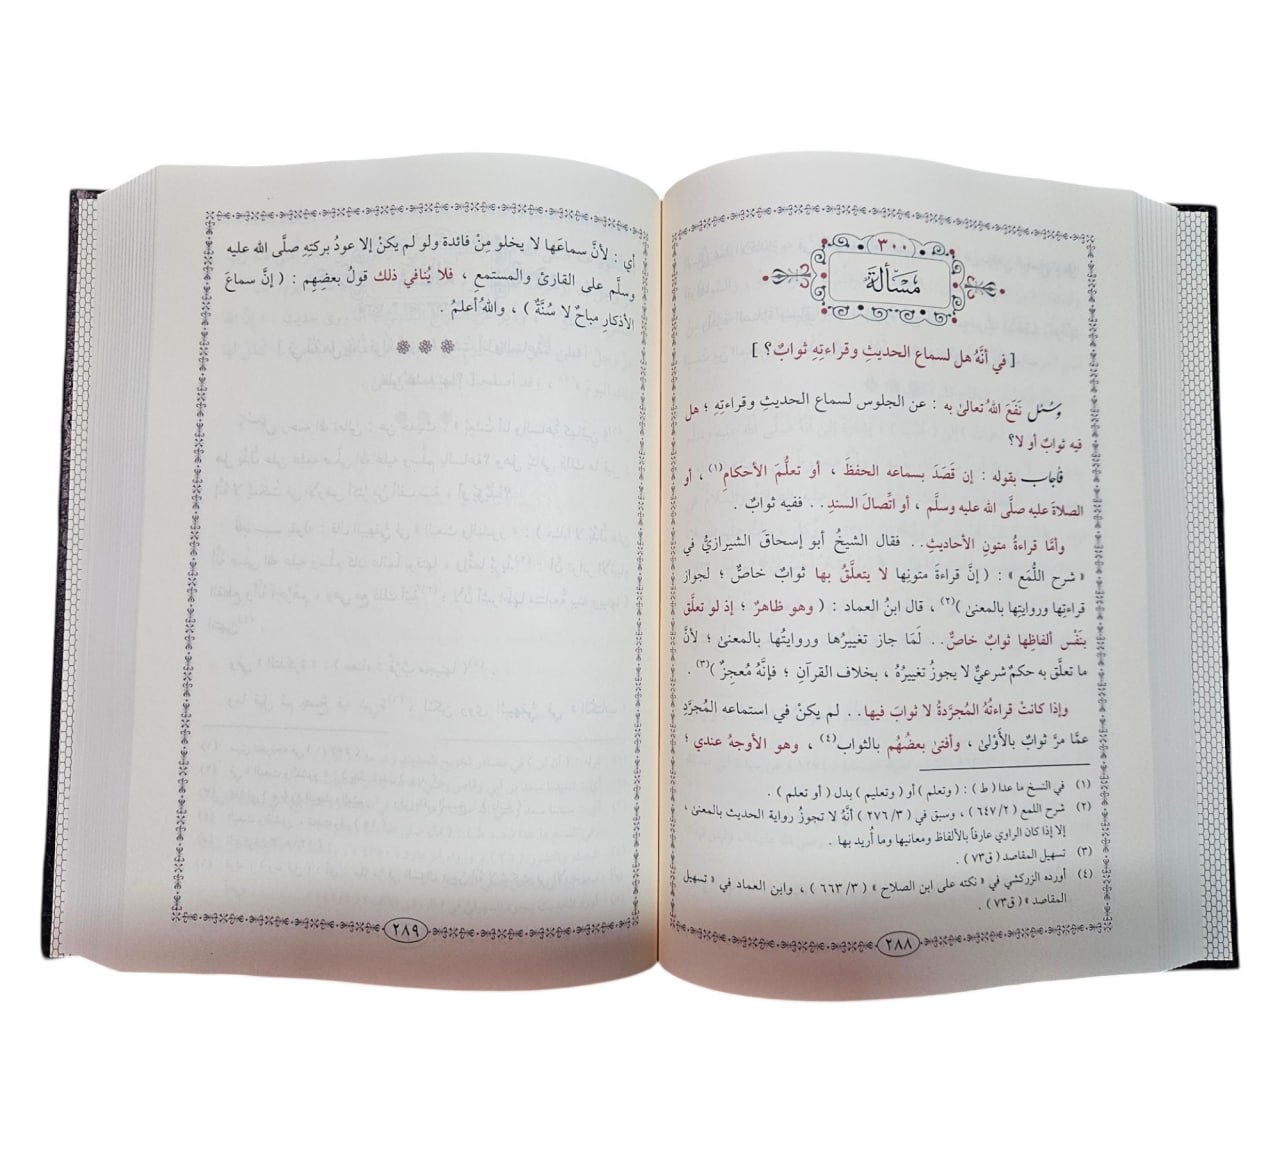 ٣٠٠
مَسْأَلَة
[ في أنَّهُ هل لسماع الحديثِ وقراءتِهِ ثوابٌ؟ ]
وسُئل نَفَعَ اللهُ تعالىٰ به : عن الجلوس لسماع الحديثِ وقراءتِهِ ؛ هل
فيه ثوابٌ أو لا؟
فأجاب بقوله : إن قَصَدَ بسماعه الحفظَ ، أو تعلُّمَ الأحكامِ(١) ، أو
الصلاةَ عليه صلَّى الله عليه وسلَّم ، أو اتِّصالَ السندِ . . ففيه ثوابٌ .
وأمَّا قراءةُ متونِ الأحاديثِ . . فقال الشيخُ أبو إسحاقَ الشيرازيُّ في
« شرح اللُّمَع » : ( إنَّ قراءةَ متونِها لا يتعلَّقُ بها ثوابٌ خاصٌّ ؛ لجواز
قراءتِها وروايتِها بالمعنىٰ )(٢) ، قال ابنُ العماد : ( وهو ظاهرٌ ؛ إذ لو تعلَّق
بنَفْس ألفاظِها ثوابٌ خاصٌّ . . لَمَا جاز تغييرُها وروايتُها بالمعنىٰ ؛ لأنَّ
ما تعلَّق به حكمٌ شرعيٌّ لا يجوزُ تغييرُهُ ، بخلاف القرآنِ ؛ فإنَّهُ مُعجِزٌ )(٣) .
وإذا كانتْ قراءتُهُ المُجرَّدةُ لا ثوابَ فيها . . لم يكنْ في استماعه المُجرَّدِ
عمَّا مرَّ ثوابٌ بالأَوْلىٰ ، وأفتىٰ بعضُهُم بالثواب(٤) ، وهو الأوجهُ عندي ؛
(١) في النسخ ما عدا ( ط ) : ( وتعلم ) أو ( وتعليم ) بدل ( أو تعلم ) .
(٢) شرح اللمع ( ٦٤٧/٢ ) ، وسبق في ( ٢٧٦/٣ ) أنَّهُ لا تجوزُ رواية الحديث بالمعنىٰ ،
إلا إذا كان الراوي عارفاً بالألفاظ ومعانيها وما أُريد بها .
(٣) تسهيل المقاصد ( ق٧٣ ) .
(٤) أورده الزركشي في « نكته على ابن الصلاح » ( ٦٦٣/٣ ) ، وابن العماد في « تسهيل
المقاصد » ( ق٧٣ ) .
٢٨٨
أي : لأنَّ سماعَها لا يخلو مِنْ فائدة ولو لم يكنْ إلا عودُ بركتِهِ صلَّى الله عليه
وسلَّم على القارئ والمستمعِ ، فلا يُنافي ذلك قولُ بعضِهِم : ( إنَّ سماعَ
الأذكارِ مباحٌ لا سُنَّةٌ ) ، واللهُ أعلمُ .
٢٨٩